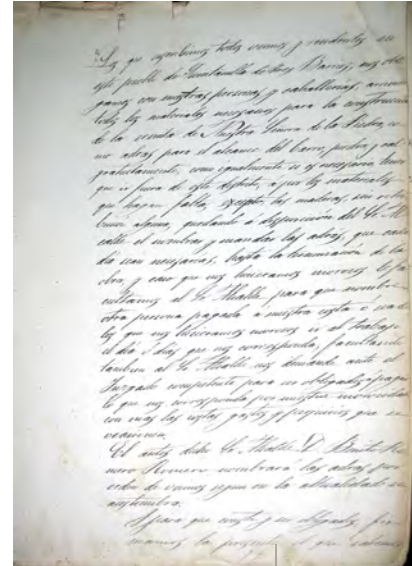 Los que suscribimos todos vecinos y residentes en
este pueblo de de los Barros, nos obli
gamos con nuestras personas y caballerías,
todos los materiales necesarios para la construcción
de la ermita de Nuestra Señora de la Piedra, co
mo adras para el alcance del barro, piedra y cal
gratuitamente, como igualmente si es necesario tener
que ir fuera de este distrito, a por los materiales
que hagan falta, excepto las maderas, sin retri
bucion alguna, quedando á disposición del Sr. Al
calde el nombrar y mandar las adras, que cada
dia sean necesarias, hasta la terminación de la
obra, y caso que nos hiciéramos morosos fa
cultamos al Sr. Alcalde, para que nombre
otra persona pagada á nuestra costa ó
los que nos hiciéramos morosos ir al trabajo
el dia ó dias que nos corresponda, facultando
tambien al Sr. Alcalde nos demande ante el
Juzgado competente para ser obligados á pagar
lo que nos corresponda por nuestra morosidad
con más las costas, gastos y perjuicios que se
ocasionen.
El antes dicho Sr. Alcalde D. Benito Ro
mero Romero nombrará las adras por
orden de vecinos segun en la actualidad se
acostumbra.
Y para que conste y ser obligados, fir
mamos la presente el que sabemos